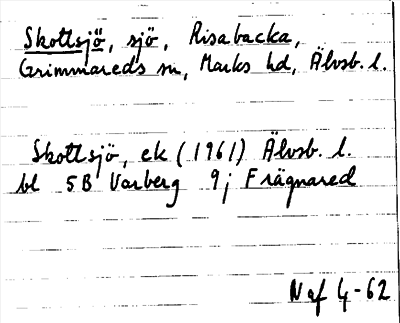 Skottsjö, sjö, Risabacka,
Grimmareds sn, Marks hd, Älvsb. l.
Skottsjö, ek (1961) Älvsb. l.
bl 5B Varberg 9j Frägnared
Naf 4-62